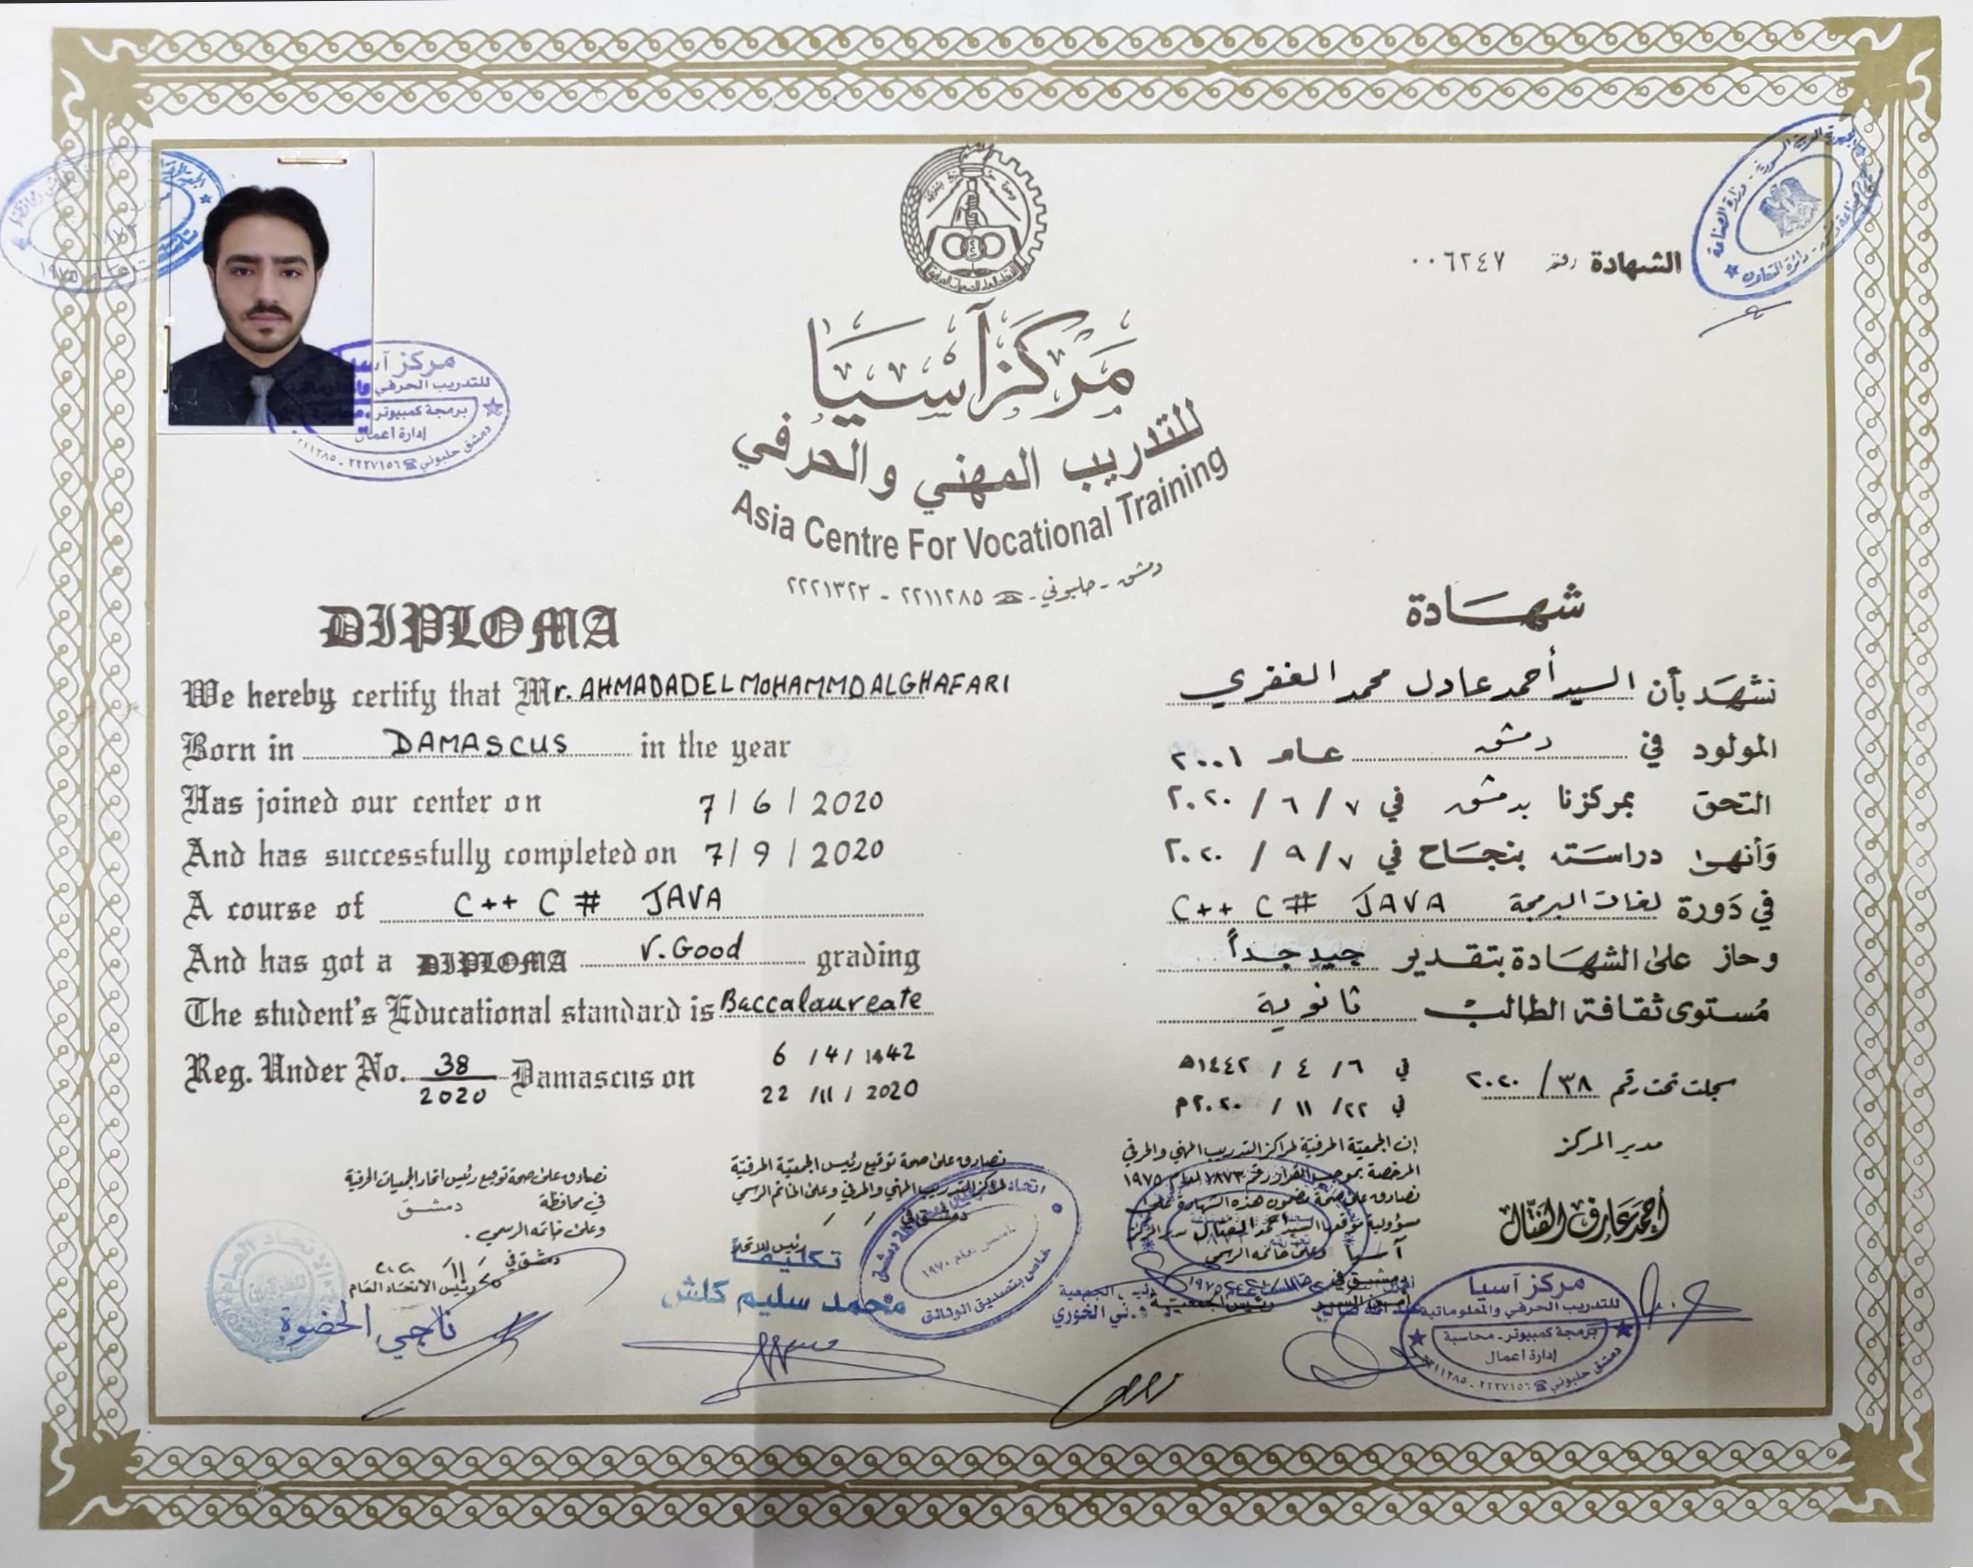 الشهادة رقم ٠٠٦٢٤٧
مركز آسيا
للتدريب المهني والحرفي
Asia Centre For Vocational Training
دمشق - حلبوني - ☎ ٢٢١١٢٨٥ - ٢٢٢١٣٢٣
DIPLOMA
We hereby certify that Mr. AHMADADEL MOHAMMD ALGHAFARI
Born in DAMASCUS in the year
Has joined our center on 7/6/2020
And has successfully completed on 7/9/2020
A course of C++ C# JAVA
And has got a DIPLOMA V.Good grading
The student's Educational standard is Baccalaureate
Reg. Under No. 38/2020 Damascus on 6/4/1442
22/11/2020
شهادة
نشهد بأن السيد أحمد عادل محمد الغفري
المولود في دمشق عام ٢٠٠١
التحق بمركزنا بدمشق في ٧/٦/٢٠٢٠
وأنهى دراسته بنجاح في ٧/٩/٢٠٢٠
في دورة لغات البرمجة C++ C# JAVA
وحاز على الشهادة بتقدير جيد جداً
مستوى ثقافة الطالب ثانوية
سجلت تحت رقم ٣٨/٢٠٢٠ في ٦/٤/١٤٤٢هـ
في ٢٢/١١/٢٠٢٠م
مدير المركز
أحمد عارف القتال
إن الجمعية الحرفية لمراكز التدريب المهني والحرفي
المرخصة بموجب القرار رقم ١٨٧٣ لعام ١٩٧٥
تصادق على صحة مضمون هذه الشهادة على
مسؤولية موقعها السيد أحمد القتال مدير مركز
آسيا وعلى خاتمه الرسمي
نصادق على صحة توقيع رئيس الجمعية الحرفية
لمراكز التدريب المهني والحرفي وعلى الخاتم الرسمي
دمشق في / /
رئيس الاتحاد
تكليفاً
محمد سليم كلش
نصادق على صحة توقيع رئيس اتحاد الجمعيات الحرفية
في محافظة دمشق
وعلى خاتمه الرسمي .
دمشق في
رئيس الاتحاد العام
ناجي الحضوة
مركز آسيا
للتدريب الحرفي والمعلوماتية
برمجة كمبيوتر - محاسبة
إدارة أعمال
دمشق حلبوني ☎ ٢٢٢٧١٥٦ - ٢٢١١٢٨٥